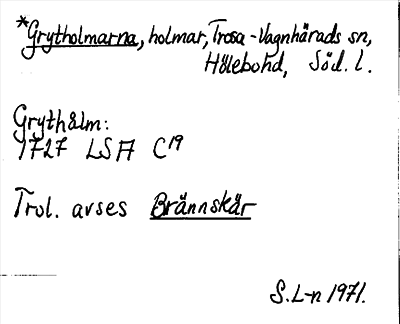 *Grytholmarna, holmar, Trosa-Vagnhärads sn,
Hölebohd, Söd. l.
Grythålm:
1727 LSA C19
Trol. avses Brännskär
S.L-n 1971.